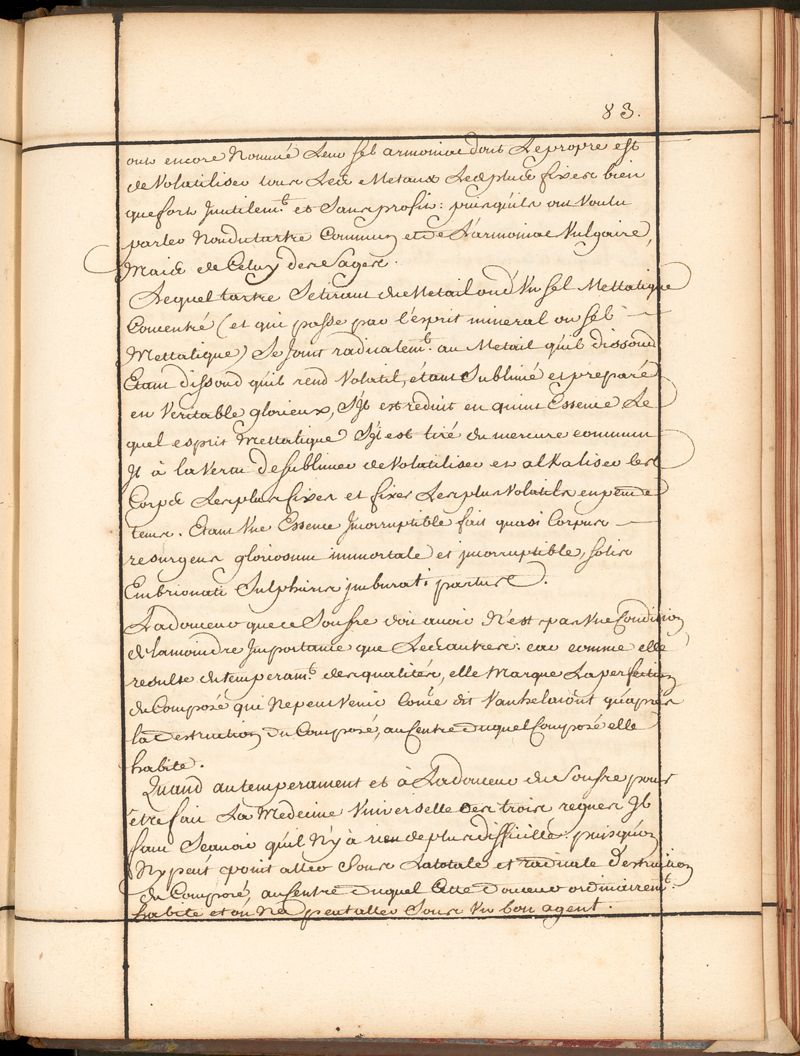 83.
ont encore Nommé Leur sel armoniac dont Le propre est
de Volatiliser tous Les Metaux Les plus fixes bien
que fort Inutilemt. et Sans profit: puisqu'ils ont Voulu
parler Non du tartre Commun et de L'armoniac Vulgaire,
Mais de Celuy des Sages.
Lequel tartre Se tirant du Metail ou d'Un sel Mettatique
Concentré (et qui passe par l'esprit mineral ou sel
Mettalique) Se Joint radicalemt. au Metail qu'il dissoud
Etant dissoud qu'il rend Volatil, étant Sublimé et preparé
en Veritable glorieux, S'jl est reduit en quint Essence Le
quel esprit Mettalique S'jl est tiré du mercure commun
Jl à la Vertu de sublimer de Volatiliser et alkaliser les
Corps Les plus fixes et fixer Les plus Volatils en peu de
tems. Etant Une Essence Incorruptible fait quasi Corpus
resurgens gloriosum immortale et jncorruptible, solis
Embrionati Sulphuris
La douceur que ce Souffre doit avoir N'est pas Une Condition
de la moindre Importance que Les autres: car comme elle
resulte du temperamt. des qualités, elle Marque La perfection
du Composé qui Ne peut Venir Come dit Vanhelmont qu'apres
la Destruction du Composé, au Centre duquel Composé elle
habite.
Quand au temperament et à La douceur du Soufre pour
être fait La Medecine Universelle des trois regnes Jl
faut Scavoir qu'il N'y à rien de plus difficille puisqu'on
N'y peut point aller Sans La totale et radicale Destruction
du Composé, au Centre duquel Cette Douceur ordinairemt.
habite et on Ne peut aller Sans Un bon agent.